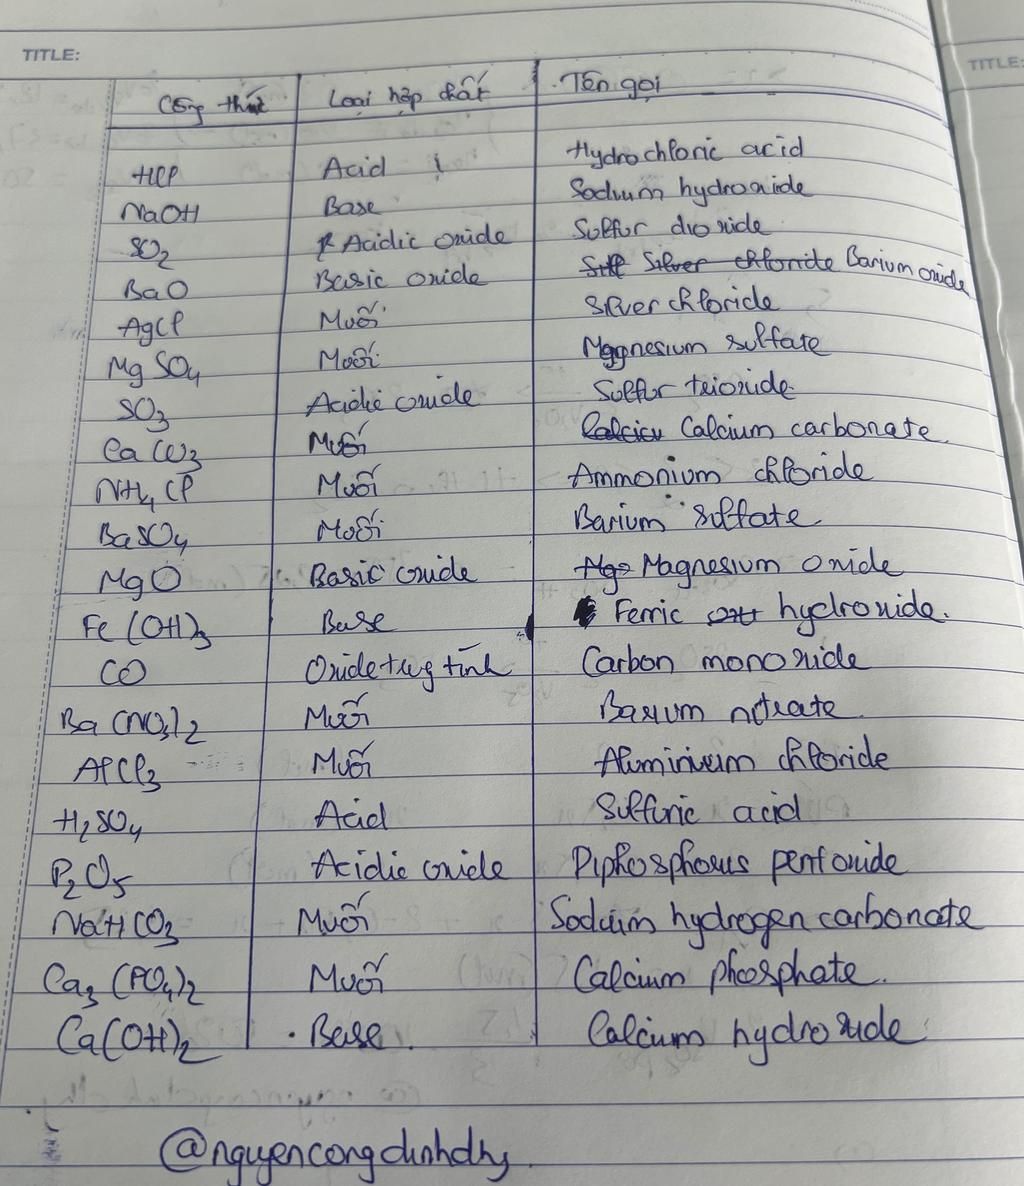 TITLE:
TITLE:
Công thức Loại hợp chất Tên gọi
HCl Acid Hydrochloric acid
NaOH Base Sodium hydroxide
SO2 Acidic oxide Sulfur dioxide
BaO Basic oxide Silver chloride Barium oxide
AgCl Muối Silver chloride
MgSO4 Muối Magnesium sulfate
SO3 Acidic oxide Sulfur trioxide
CaCO3 Muối Calcium carbonate
NH4Cl Muối Ammonium chloride
BaSO4 Muối Barium sulfate
MgO Basic oxide Magnesium oxide
Fe(OH)3 Base Ferric hydroxide.
CO Oxide trung tính Carbon monoxide
Ba(NO3)2 Muối Barium nitrate
AlCl3 Muối Aluminium chloride
H2SO4 Acid Sulfuric acid
P2O5 Acidic oxide Diphosphorus pentoxide
NaHCO3 Muối Sodium hydrogen carbonate
Ca3(PO4)2 Muối Calcium phosphate.
Ca(OH)2 Base Calcium hydroxide
@nguyencongdinhdhy